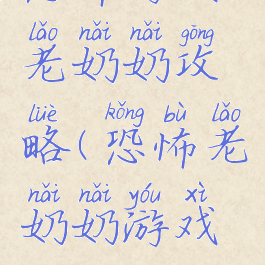 lǎo nǎi nǎi gōng
老奶奶攻
lüè kǒng bù lǎo
略(恐怖老
nǎi nǎi yóu xì
奶奶游戏